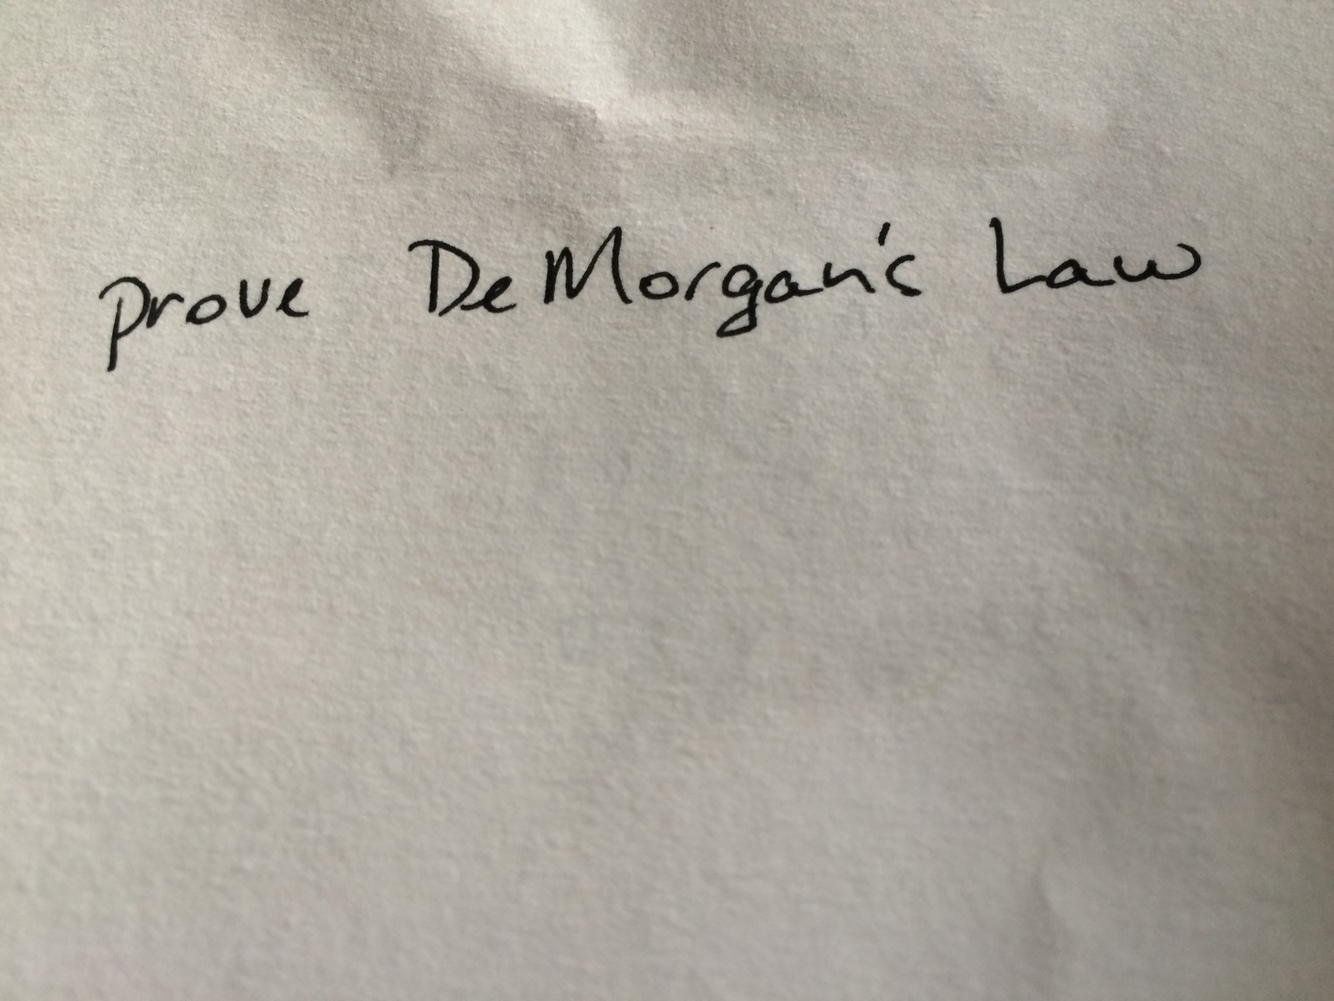 prove DeMorgan's Law